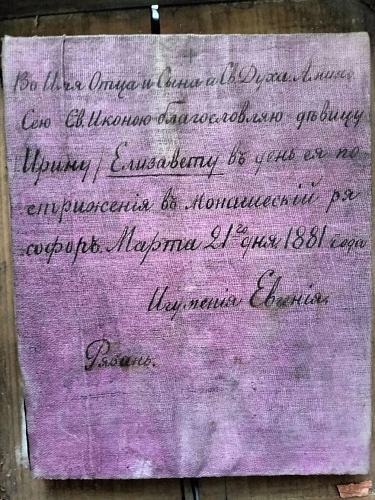 Во Имя Отца и Сына и Св. Духа. Аминь.
Сею Св. Иконою благословляю дѣвицу
Ирину / Елизавету въ день ея по
стриженія въ монашескій ря
софоръ. Марта 21го дня 1881 года
Игуменія Евгенія.
Рязань.